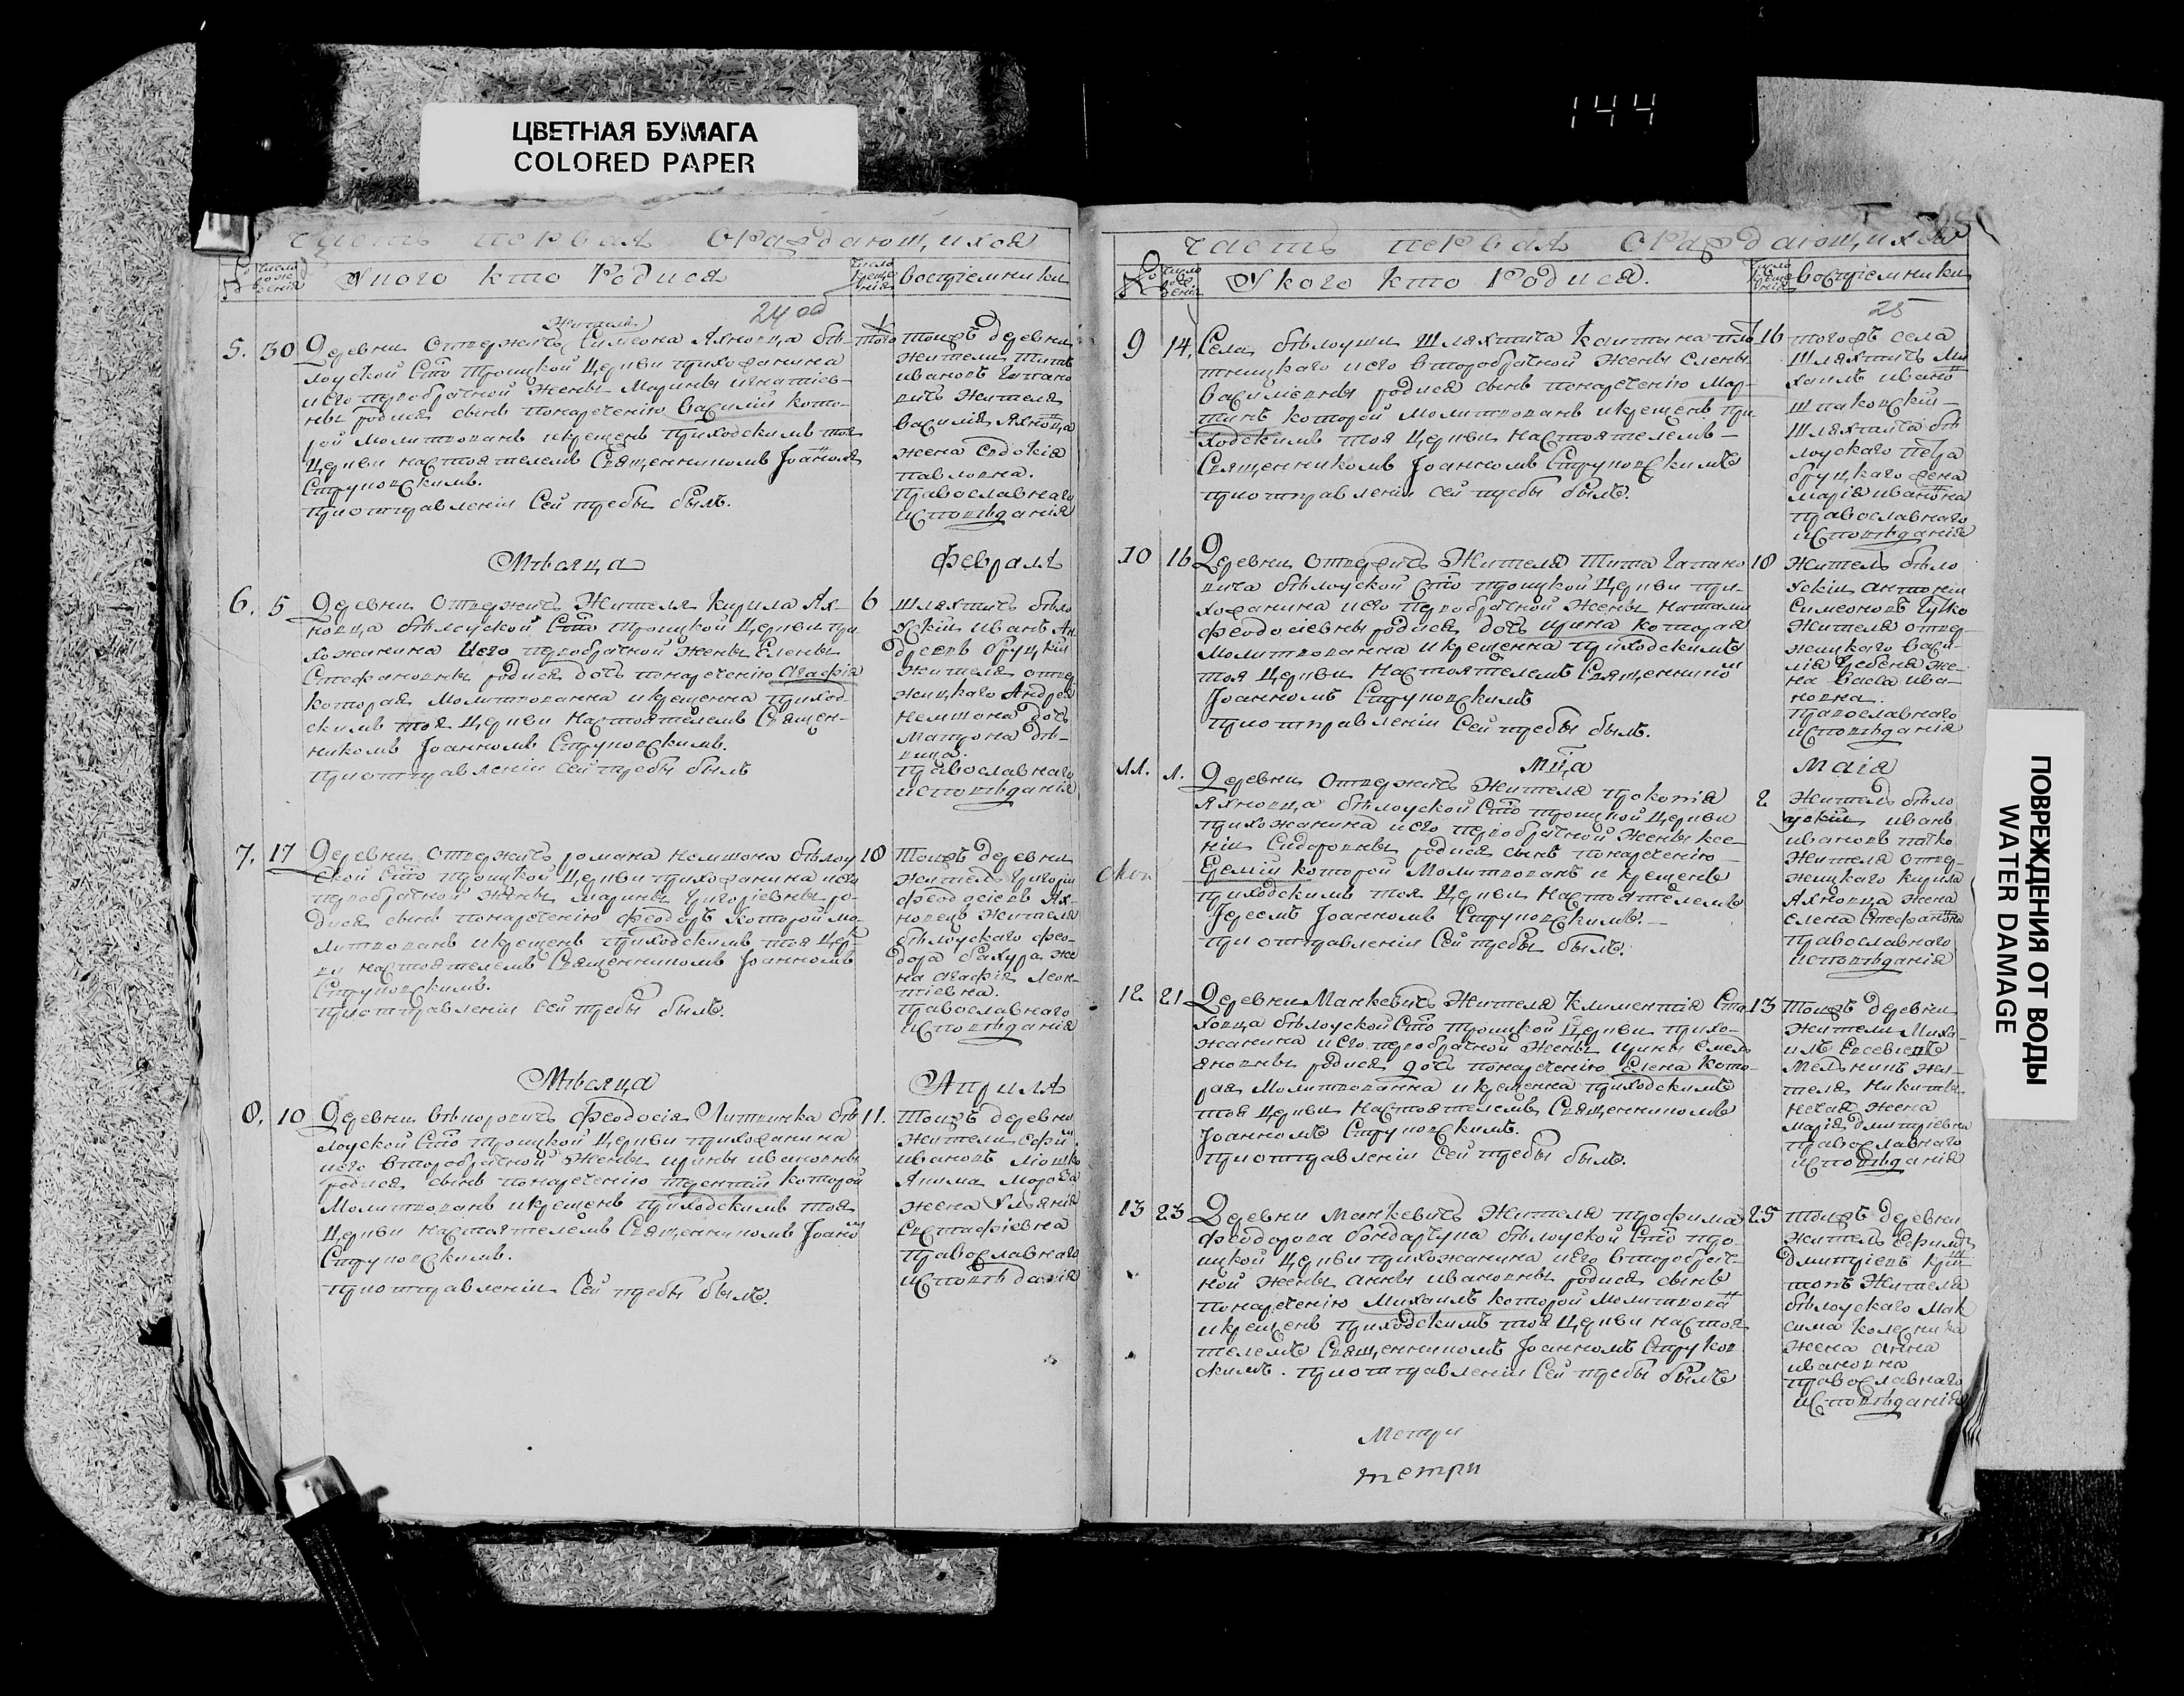 ЦВЕТНАЯ БУМАГА
COLORED PAPER
144
ПОВРЕЖДЕНИЯ ОТ ВОДЫ
WATER DAMAGE
часть первая ораждающихся
Число рожденія
У кого кто родися
Число крещенія
воспріемники
24 об
5. 30
жителя
Деревни Отвержичъ Симеона Яхновца бѣ-
лоуской Сто Троицкой Церкви прихожанина
и его первобрачной жены Марины игнатіев-
ны родися сынъ понаречению василій кото-
рой молитвованъ и крещенъ приходскимъ тоя
Церкви настоятелемъ Священникомъ Іоанномъ
Струковскимъ.
при отправленіи сей требы былъ.
тоежъ деревни
житель Титъ
ивановъ
жителя
василія Яхновца
жена Евдокія
павловна.
православнаго
исповѣданія
Мѣсяца
Февраля
6. 5
Деревни Отвержичъ жителя Кирила Ях-
новца бѣлоуской Сто Троицкой Церкви при
хожанина и его первобрачной жены Елены
Стефановны родися дочь понаречению Агафія
которая молитвованна и крещенна приход-
скимъ тоя Церкви настоятелемъ Священ-
никомъ Іоанномъ Струковскимъ.
при отправленіи сей требы былъ
6
шляхтичъ бѣло
ускій иванъ Ан
дреевъ Бруцкій
жителя отвер
жицкаго Андрея
немшона дочь
Матрона дѣ-
вица.
православнаго
исповѣданія
7. 17
Деревни Отвержичъ романа немшона бѣлоу
ской Сто Троицкой Церкви прихожанина и его
первобрачной жены марины григоріевны ро-
дися сынъ понаречению феодоръ которой мо-
литвованъ и крещенъ приходскимъ тоя Цер-
кви настоятелемъ Священникомъ Іоанномъ
Струковскимъ.
при отправленіи сей требы былъ.
18
Тоежъ деревни
житель григорій
феодосіевъ Ях-
новецъ жителя
бѣлоускаго фео-
дора бахура же
на агафія Леон
тіевна.
православнаго
исповѣданія
Мѣсяца
Апрѣля
8. 10
Деревни феодосія Литвинка бѣ
лоуской Сто Троицкой Церкви прихожанина
и его второбрачной жены ирины ивановны
родися сынъ понаречению терентій которой
молитвованъ и крещенъ приходскимъ тоя
Церкви настоятелемъ Священникомъ Іоанно
Струковскимъ.
при отправленіи сей требы былъ.
11.
Тоежъ деревни
житель Ефимъ
ивановъ
Якима Мороза
жена Ульянія
Евстафіевна
православнаго
исповѣданія
часть первая ораждающихся
Число рожденія
У кого кто родися.
Число крещенія
воспріемники
25
9 14,
Села бѣлоуши шляхтича
и его второбрачной жены Елены
василіевны родися сынъ понаречению Мар-
тинъ которой молитвованъ и крещенъ при
ходскимъ тоя Церкви настоятелемъ
Священникомъ Іоанномъ Струковскимъ
при отправленіи сей требы былъ.
16
тогожъ села
шляхтичъ Ми
хаилъ ивановъ
шпаковскій
шляхтича бѣ
лоускаго петра
бруцкаго жена
марія ивановна
православнаго
исповѣданія
10 16
Деревни Отвержичъ жителя Тита
бѣлоуской Сто Троицкой Церкви при-
хожанина и его первобрачной жены наталіи
феодосіевны родися дочь ирина которая
молитвованна и крещенна приходскимъ
тоя Церкви настоятелемъ Священнико
Іоанномъ Струковскимъ
при отправленіи сей требы былъ.
18
житель бѣло
ускій антоній
Симеоновъ
жителя отвер-
жицкаго васи-
лія гребена же-
на васса ива-
новна.
православнаго
исповѣданія
Мца
Маія
11. 1.
Деревни Отвержичъ жителя прокопія
Яхновца бѣлоуской Сто Троицкой Церкви
прихожанина и его первобрачной жены ксе-
ніи Сидоровны родися сынъ понаречению
Еремій которой молитвованъ и крещенъ
приходскимъ тоя Церкви настоятелемъ
Іереемъ Іоанномъ Струковскимъ.
при отправленіи сей требы былъ.
2
житель бѣло
ускій иванъ
ивановъ
жителя отвер-
жицкаго Кирила
Яхновца жена
Елена Стефановна
православнаго
исповѣданія
12 21
Деревни Манкевичъ жителя Климентія Ста
ховца бѣлоуской Сто Троицкой Церкви прихо-
жанина и его первобрачной жены ирины Емель
яновны родися дочь понаречению Елена кото-
рая молитвованна и крещенна приходскимъ
тоя Церкви настоятелемъ Священникомъ
Іоанномъ Струковскимъ.
при отправленіи сей требы былъ.
13
Тоежъ деревни
житель Миха-
илъ Евсевіевъ
Мельникъ жи-
теля никиты
нечая жена
марія дмитріевна
православнаго
исповѣданія
13 23
Деревни Манкевичъ жителя трофима
феодорова бондарчука бѣлоуской Сто тро-
ицкой Церкви прихожанина и его второбрач-
ной жены анны ивановны родися сынъ
понаречению Михаилъ которой молитвова
и крещенъ приходскимъ тоя Церкви настоя
телемъ Священникомъ Іоанномъ Струков
скимъ. при отправленіи сей требы былъ
25
Тоежъ деревни
житель Ефимъ
дмитріевъ
жителя
бѣлоускаго Мак
сима колесника
жена анна
ивановна
православнаго
исповѣданія
Метри
метри